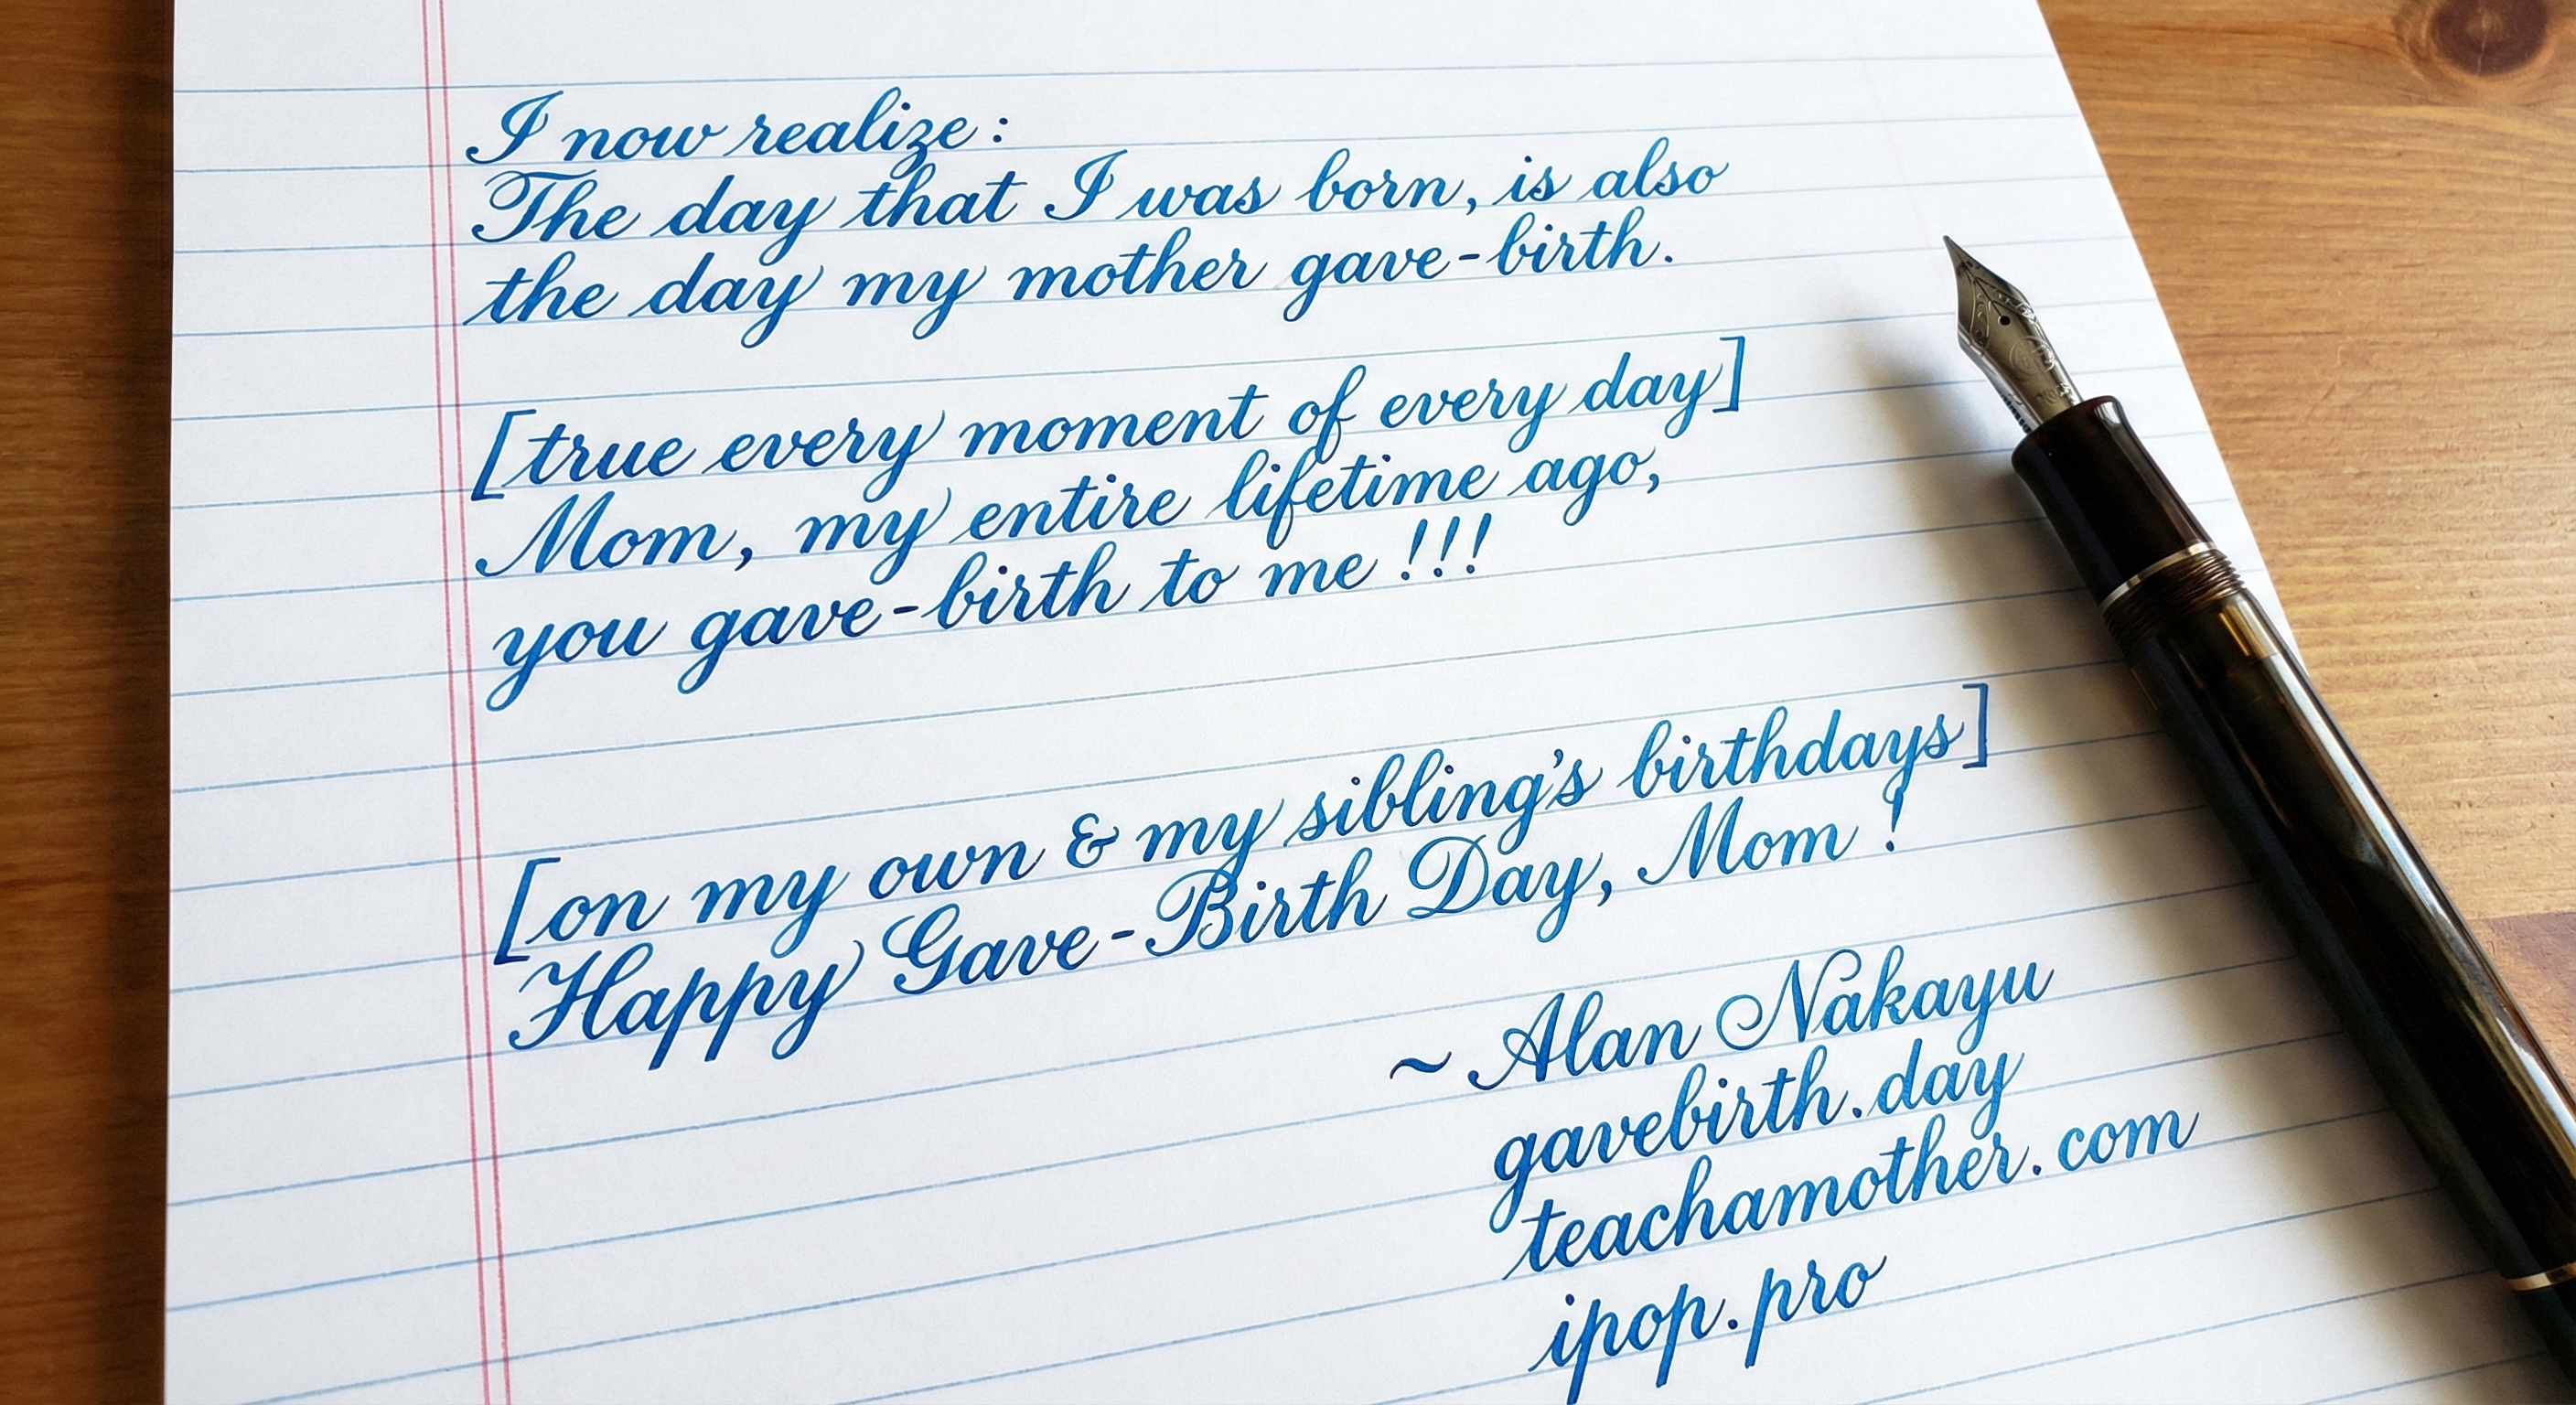 I now realize :
The day that I was born, is also
the day my mother gave-birth.
[true every moment of every day]
Mom, my entire lifetime ago,
you gave-birth to me !!!
[on my own & my sibling's birthdays]
Happy Gave-Birth Day, Mom !
~ Alan Nakayu
gavebirth.day
teachamother.com
ipop.pro